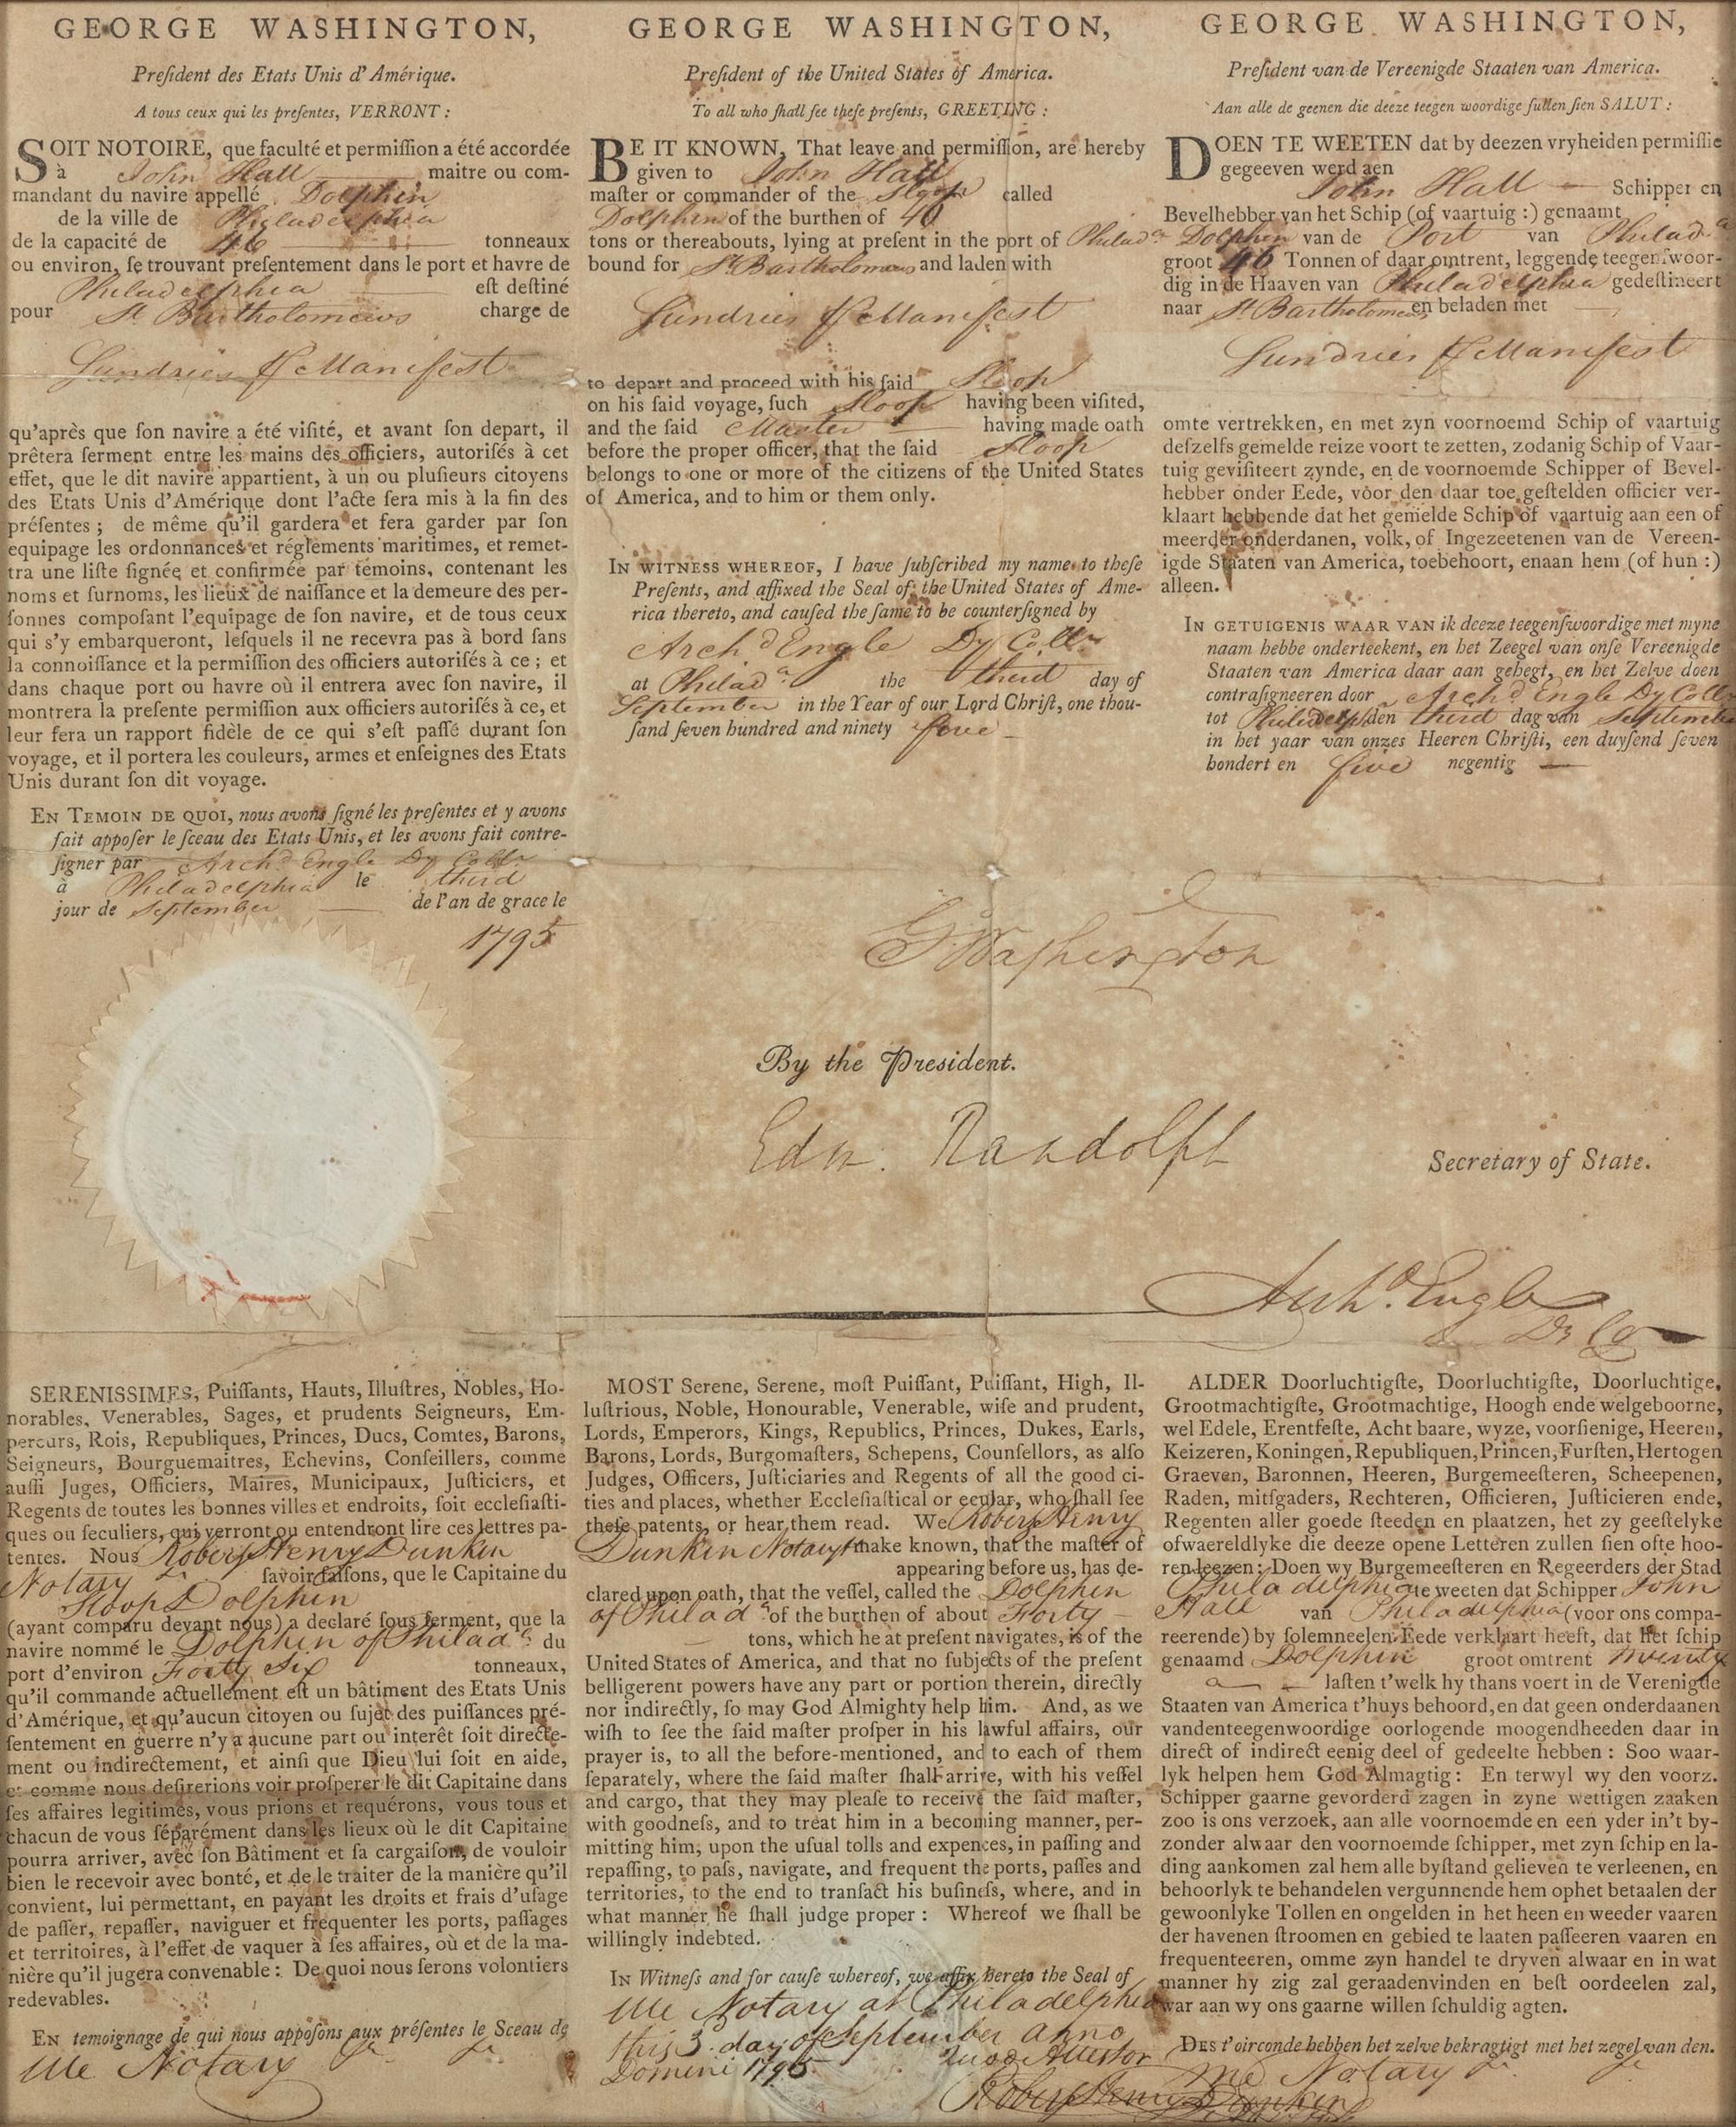 GEORGE WASHINGTON,
Preſident des Etats Unis d'Amérique.
A tous ceux qui les preſentes, VERRONT :
SOIT NOTOIRE, que faculté et permiſſion a été accordée
à John Hall maitre ou com-
mandant du navire appellé Dolphin
de la ville de Philadelphia
de la capacité de 46 tonneaux
ou environ, ſe trouvant preſentement dans le port et havre de
Philadelphia eſt deſtiné
pour St. Bartholomews charge de
Sundries Manifest
qu'après que ſon navire a été viſité, et avant ſon depart, il
prêtera ſerment entre les mains des officiers, autoriſés à cet
effet, que le dit navire appartient, à un ou pluſieurs citoyens
des Etats Unis d'Amérique dont l'acte ſera mis à la fin des
préſentes ; de même qu'il gardera et fera garder par ſon
equipage les ordonnances et réglements maritimes, et remet-
tra une liſte ſignée et confirmée par témoins, contenant les
noms et ſurnoms, les lieux de naiſſance et la demeure des per-
ſonnes compoſant l'equipage de ſon navire, et de tous ceux
qui s'y embarqueront, leſquels il ne recevra pas à bord ſans
la connoiſſance et la permiſſion des officiers autoriſés à ce ; et
dans chaque port ou havre où il entrera avec ſon navire, il
montrera la preſente permiſſion aux officiers autoriſés à ce, et
leur fera un rapport fidèle de ce qui s'eſt paſſé durant ſon
voyage, et il portera les couleurs, armes et enſeignes des Etats
Unis durant ſon dit voyage.
EN TEMOIN DE QUOI, nous avons ſigné les preſentes et y avons
fait appoſer le ſceau des Etats Unis, et les avons fait contre-
ſigner par Archd Engle Dy Collr
à Philadelphia le third
jour de September de l'an de grace le
1795
GEORGE WASHINGTON,
Preſident of the United States of America.
To all who ſhall ſee theſe preſents, GREETING :
BE IT KNOWN, That leave and permiſſion, are hereby
given to John Hall
maſter or commander of the Sloop called
Dolphin of the burthen of 46
tons or thereabouts, lying at preſent in the port of Philada
bound for St Bartholomews and laden with
Sundries Manifest
to depart and proceed with his ſaid Sloop
on his ſaid voyage, ſuch Sloop having been viſited,
and the ſaid Master having made oath
before the proper officer, that the ſaid Sloop
belongs to one or more of the citizens of the United States
of America, and to him or them only.
IN WITNESS WHEREOF, I have ſubſcribed my name to theſe
Preſents, and affixed the Seal of the United States of Ame-
rica thereto, and cauſed the ſame to be counterſigned by
Archd Engle Dy Collr
at Philada the third day of
September in the Year of our Lord Chriſt, one thou-
ſand ſeven hundred and ninety five
GEORGE WASHINGTON,
Preſident van de Vereenigde Staaten van America.
Aan alle de geenen die deeze teegen woordige ſullen ſien SALUT :
DOEN TE WEETEN dat by deezen vryheiden permiſſie
gegeeven werd aen
John Hall Schipper en
Bevelhebber van het Schip (of vaartuig :) genaamt
Dolphin van de Port van Philada
groot 46 Tonnen of daar omtrent, leggende teegenſwoor-
dig in de Haaven van Philadelphia gedeſtineert
naar St Bartholomews en beladen met
Sundries Manifest
omte vertrekken, en met zyn voornoemd Schip of vaartuig
deſzelfs gemelde reize voort te zetten, zodanig Schip of Vaar-
tuig geviſiteert zynde, en de voornoemde Schipper of Bevel-
hebber onder Eede, vóor den daar toe geſtelden officier ver-
klaart hebbende dat het gemelde Schip of vaartuig aan een of
meerder onderdanen, volk, of Ingezeetenen van de Vereen-
igde Staaten van America, toebehoort, enaan hem (of hun :)
alleen.
IN GETUIGENIS WAAR VAN ik deeze teegenſwoordige met myne
naam hebbe onderteekent, en het Zeegel van onſe Vereenigde
Staaten van America daar aan gehegt, en het Zelve doen
contraſigneeren door Archd Engle Dy Collr
tot Philadelpa den third dag van September
in het yaar van onzes Heeren Chriſti, een duyſend ſeven
hondert en five negentig
G Washington
By the President.
Edm: Randolph
Secretary of State.
Archd. Engle
Dy Co
SERENISSIMES, Puiſſants, Hauts, Illuſtres, Nobles, Ho-
norables, Venerables, Sages, et prudents Seigneurs, Em-
pereurs, Rois, Republiques, Princes, Ducs, Comtes, Barons,
Seigneurs, Bourguemaitres, Echevins, Conſeillers, comme
auſſi Juges, Officiers, Maires, Municipaux, Juſticiers, et
Regents de toutes les bonnes villes et endroits, ſoit eccleſiaſti-
ques ou ſeculiers, qui verront ou entendront lire ces lettres pa-
tentes. Nous Robert Henry Dunkin
Notary ſavoir faiſons, que le Capitaine du
Sloop Dolphin
(ayant comparu devant nous) a declaré ſous ſerment, que la
navire nommé le Dolphin of Philada du
port d'environ Forty Six tonneaux,
qu'il commande actuellement eſt un bâtiment des Etats Unis
d'Amérique, et qu'aucun citoyen ou ſujet des puiſſances pré-
ſentement en guerre n'y a aucune part ou interêt ſoit directe-
ment ou indirectement, et ainſi que Dieu lui ſoit en aide,
et comme nous deſirerions voir proſperer le dit Capitaine dans
ſes affaires legitimes, vous prions et requérons, vous tous et
chacun de vous ſéparément dans les lieux où le dit Capitaine
pourra arriver, avec ſon Bâtiment et ſa cargaiſon, de vouloir
bien le recevoir avec bonté, et de le traiter de la manière qu'il
convient, lui permettant, en payant les droits et frais d'uſage
de paſſer, repaſſer, naviguer et fréquenter les ports, paſſages
et territoires, à l'effet de vaquer à ſes affaires, où et de la ma-
nière qu'il jugera convenable : De quoi nous ſerons volontiers
redevables.
EN temoignage de qui nous appoſons aux préſentes le Sceau de
me Notary
MOST Serene, Serene, moſt Puiſſant, Puiſſant, High, Il-
luſtrious, Noble, Honourable, Venerable, wiſe and prudent,
Lords, Emperors, Kings, Republics, Princes, Dukes, Earls,
Barons, Lords, Burgomaſters, Schepens, Counſellors, as alſo
Judges, Officers, Juſticiaries and Regents of all the good ci-
ties and places, whether Eccleſiaſtical or ecular, who ſhall ſee
theſe patents, or hear them read. We Robert Henry
Dunkin Notary make known, that the maſter of
appearing before us, has de-
clared upon oath, that the veſſel, called the Dolphin
of Philada of the burthen of about Forty
tons, which he at preſent navigates, is of the
United States of America, and that no ſubjects of the preſent
belligerent powers have any part or portion therein, directly
nor indirectly, ſo may God Almighty help him. And, as we
wiſh to ſee the ſaid maſter proſper in his lawful affairs, our
prayer is, to all the before-mentioned, and to each of them
ſeparately, where the ſaid maſter ſhall arrive, with his veſſel
and cargo, that they may pleaſe to receive the ſaid maſter,
with goodneſs, and to treat him in a becoming manner, per-
mitting him, upon the uſual tolls and expences, in paſſing and
repaſſing, to paſs, navigate, and frequent the ports, paſſes and
territories, to the end to tranſact his buſineſs, where, and in
what manner he ſhall judge proper : Whereof we ſhall be
willingly indebted.
IN Witneſs and for cauſe whereof, we affix hereto the Seal of
me Notary at Philadelphia
this 3 day of September Anno
Domini 1795 Quod Attestor
Robert Henry Dunkin
ALDER Doorluchtigſte, Doorluchtigſte, Doorluchtige,
Grootmachtigſte, Grootmachtige, Hoogh ende welgeboorne,
wel Edele, Erentfeſte, Acht baare, wyze, voorſienige, Heeren,
Keizeren, Koningen, Republiquen, Princen, Furſten, Hertogen
Graeven, Baronnen, Heeren, Burgemeeſteren, Scheepenen,
Raden, mitſgaders, Rechteren, Officieren, Juſticieren ende,
Regenten aller goede ſteeden en plaatzen, het zy geeſtelyke
ofwaereldlyke die deeze opene Letteren zullen ſien ofte hoo-
ren leezen : Doen wy Burgemeeſteren en Regeerders der Stad
Philadelphia te weeten dat Schipper John
Hall van Philadelphia (voor ons compa-
reerende) by ſolemneelen Eede verklaart heeft, dat het ſchip
genaamd Dolphin groot omtrent twenty
laſten t'welk hy thans voert in de Verenigde
Staaten van America t'huys behoord, en dat geen onderdaanen
vandenteegenwoordige oorlogende moogendheeden daar in
direct of indirect eenig deel of gedeelte hebben : Soo waar-
lyk helpen hem God Almagtig : En terwyl wy den voorz.
Schipper gaarne gevorderd zagen in zyne wettigen zaaken
zoo is ons verzoek, aan alle voornoemde en een yder in't by-
zonder alwaar den voornoemde ſchipper, met zyn ſchip en la-
ding aankomen zal hem alle byſtand gelieven te verleenen, en
behoorlyk te behandelen vergunnende hem ophet betaalen der
gewoonlyke Tollen en ongelden in het heen en weeder vaaren
der havenen ſtroomen en gebied te laaten paſſeeren vaaren en
frequenteeren, omme zyn handel te dryven alwaar en in wat
manner hy zig zal geraadenvinden en beſt oordeelen zal,
war aan wy ons gaarne willen ſchuldig agten.
DES t'oirconde hebben het zelve bekragtigt met het zegel van den.
me Notary